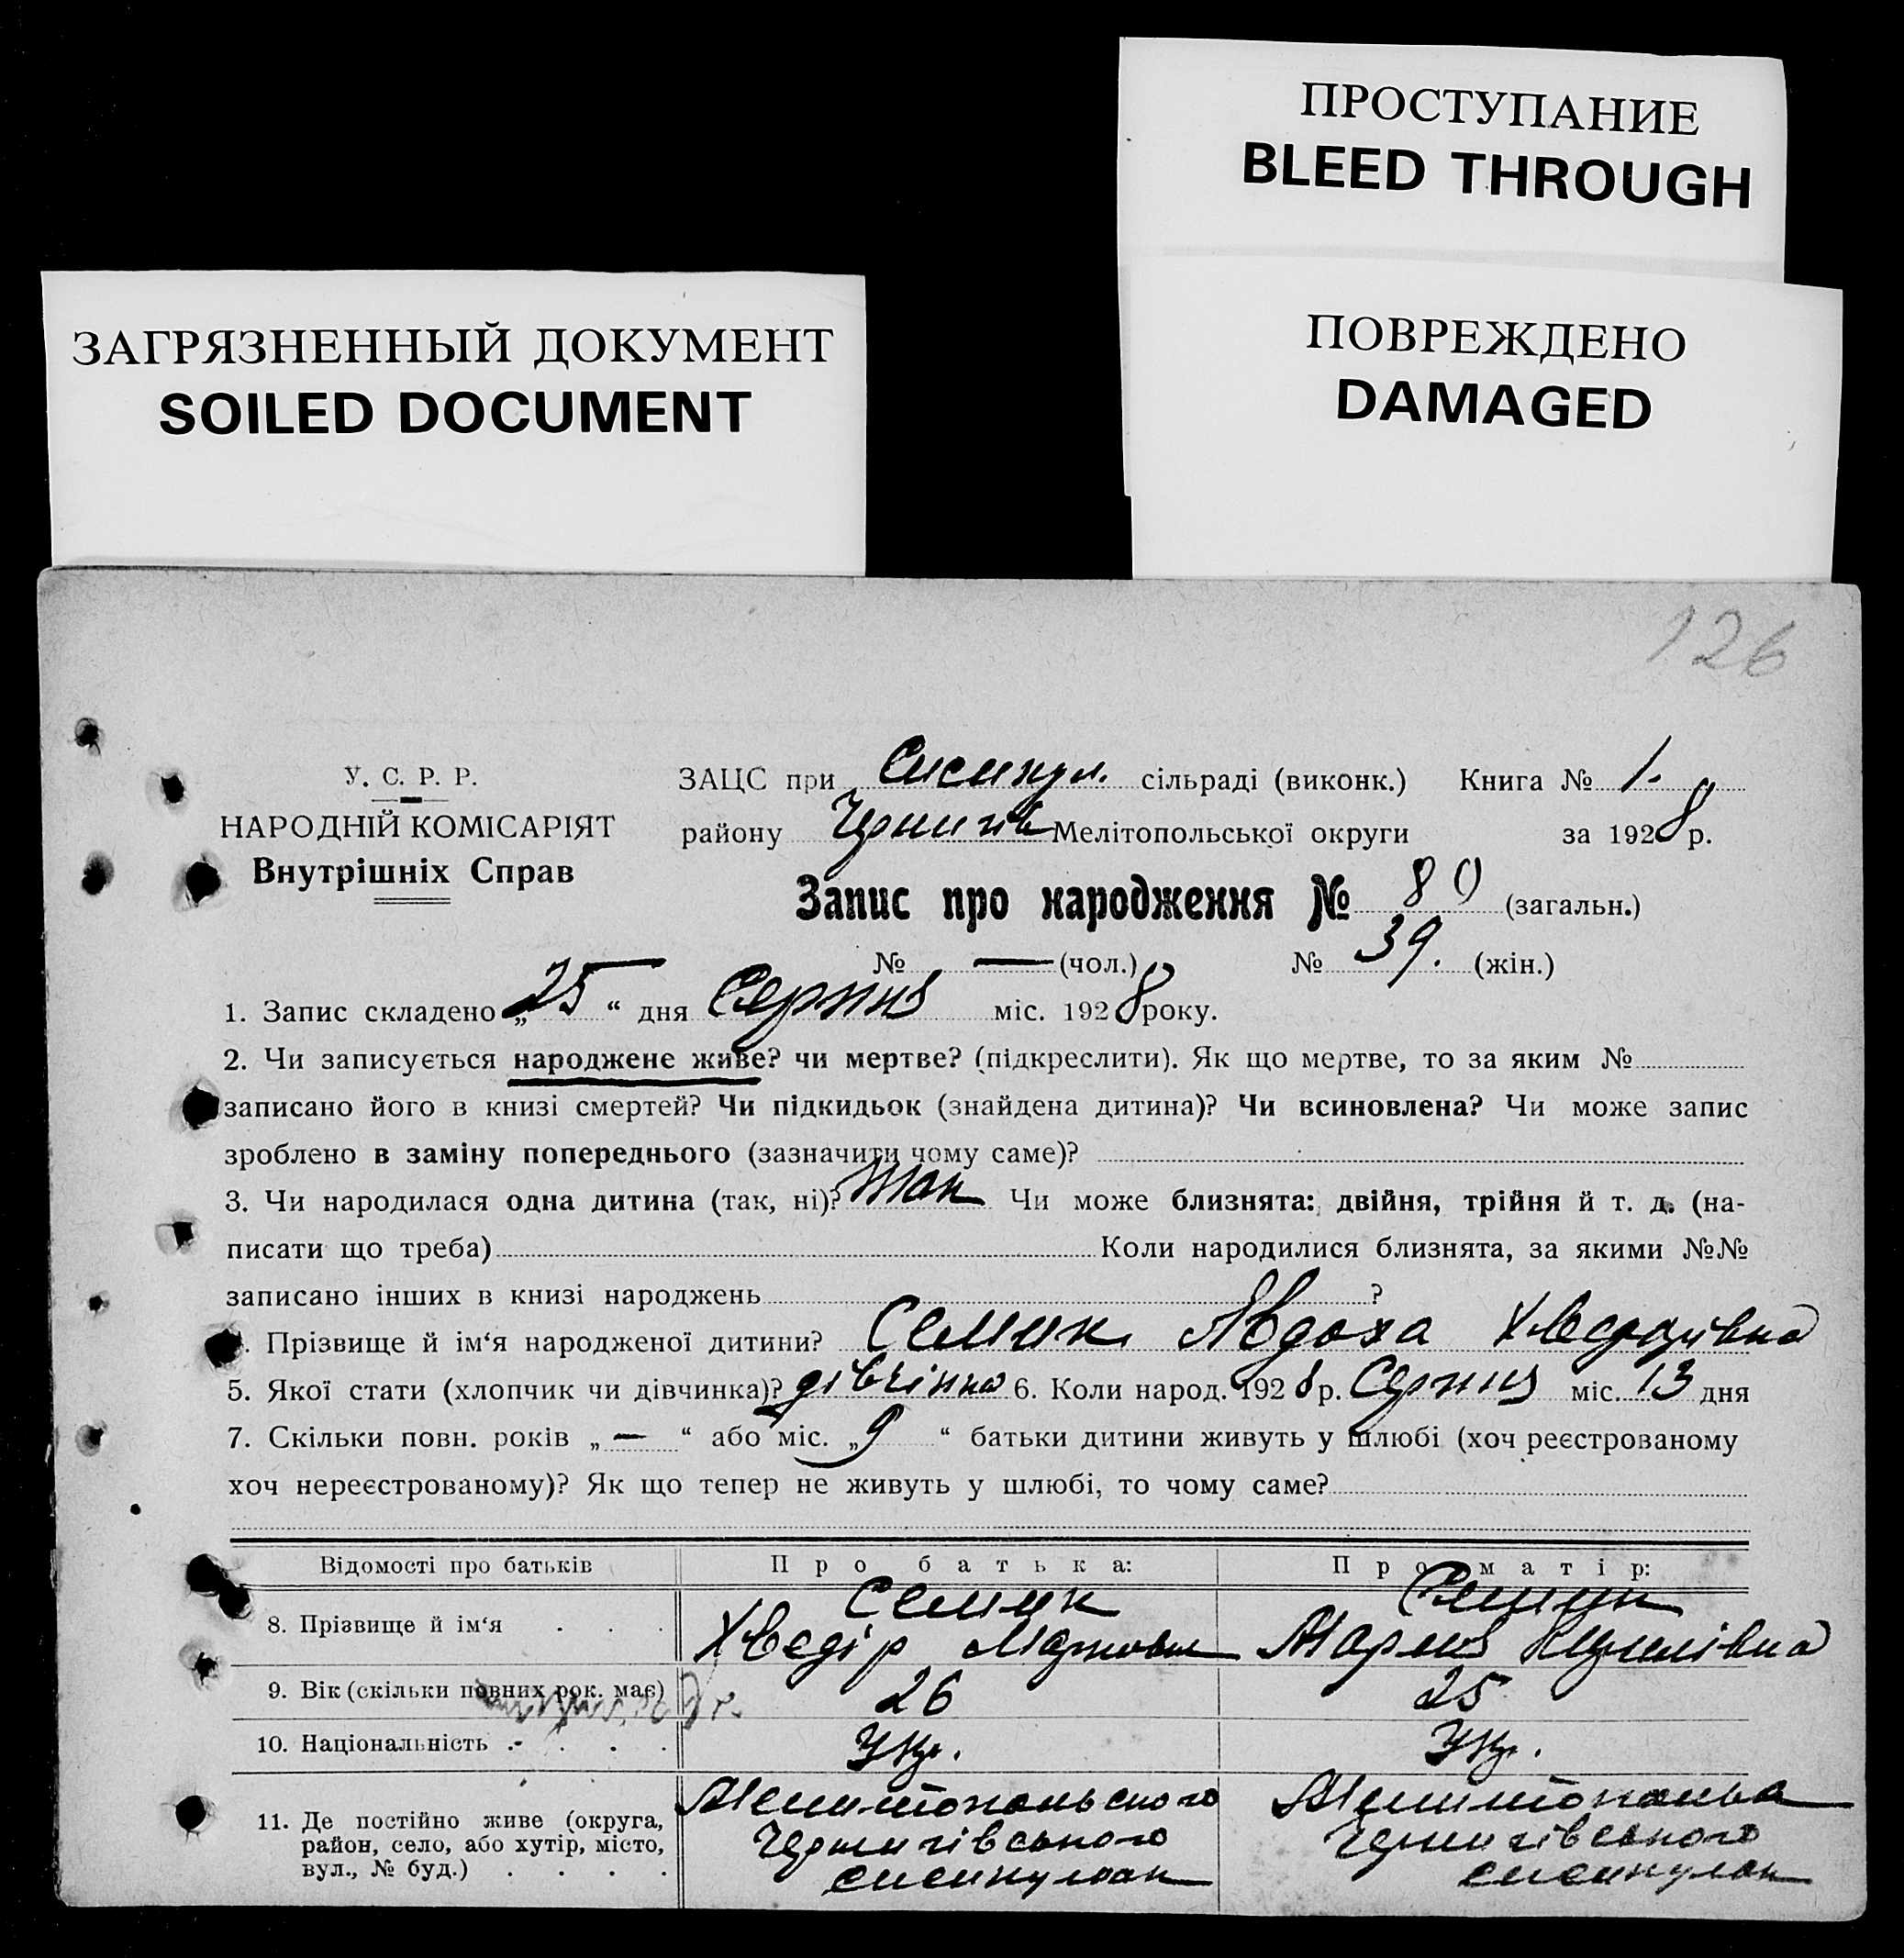 ПРОСТУПАНИЕ
BLEED THROUGH
ЗАГРЯЗНЕННЫЙ ДОКУМЕНТ
SOILED DOCUMENT
ПОВРЕЖДЕНО
DAMAGED
126
У. С. Р. Р.
НАРОДНІЙ КОМІСАРІЯТ
Внутрішніх Справ
ЗАЦС при Сисикул. сільраді (виконк.) Книга № 1.
району Чернигів Мелітопольської округи за 1928 р.
Запис про народження № 80 (загальн.)
№ — (чол.) № 39. (жін.)
1. Запис складено „25“ дня Серпня міс. 1928 року.
2. Чи записується народжене живе? чи мертве? (підкреслити). Як що мертве, то за яким №
записано його в книзі смертей? Чи підкидьок (знайдена дитина)? Чи всиновлена? Чи може запис
зроблено в заміну попереднього (зазначити чому саме)?
3. Чи народилася одна дитина (так, ні)? Так Чи може близнята: двійня, трійня й т. д. (на-
писати що треба) Коли народилися близнята, за якими №№
записано інших в книзі народжень ?
Прізвище й ім‘я народженої дитини? Семик Явдоха Хведорівна
5. Якої стати (хлопчик чи дівчинка)? дівчінка 6. Коли народ. 1928 р. Серпня міс. 13 дня
7. Скільки повн. років „—“ або міс. „9“ батьки дитини живуть у шлюбі (хоч реєстрованому
хоч нереєстрованому)? Як що тепер не живуть у шлюбі, то чому саме?
Відомості про батьків Про батька: Про матір:
8. Прізвище й ім‘я . . . Семик Семик
Хведір Маркович Мария
9. Вік (скільки повних рок. має) 26 25
10. Національність . . . . Укр. Укр.
11. Де постійно живе (округа, район, село, або хутір, місто, вул., № буд.) . . . .
Мелитопольского Мелитополька
Чернигівського Чернигівського
сисикулак сисикулак